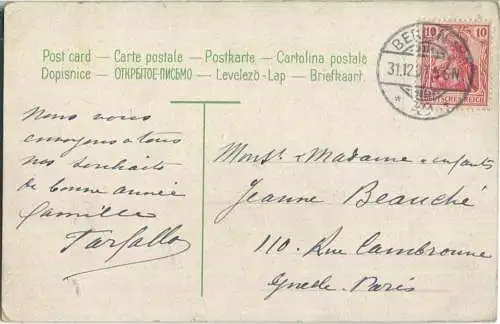 Post card — Carte postale — Postkarte — Cartolina postale
Dopisnice — ОТКРЫТОЕ ПИСЬМО — Levelező-Lap — Briefkaart
10 10
DEUTSCHES REICH
31.12
Nous vous
envoyons a tous
nos souhaits
de bonne année
famille
Farfalla
Monsr & Madame & enfants
Jeanne Beauché
110 Rue Cambronne
Paris